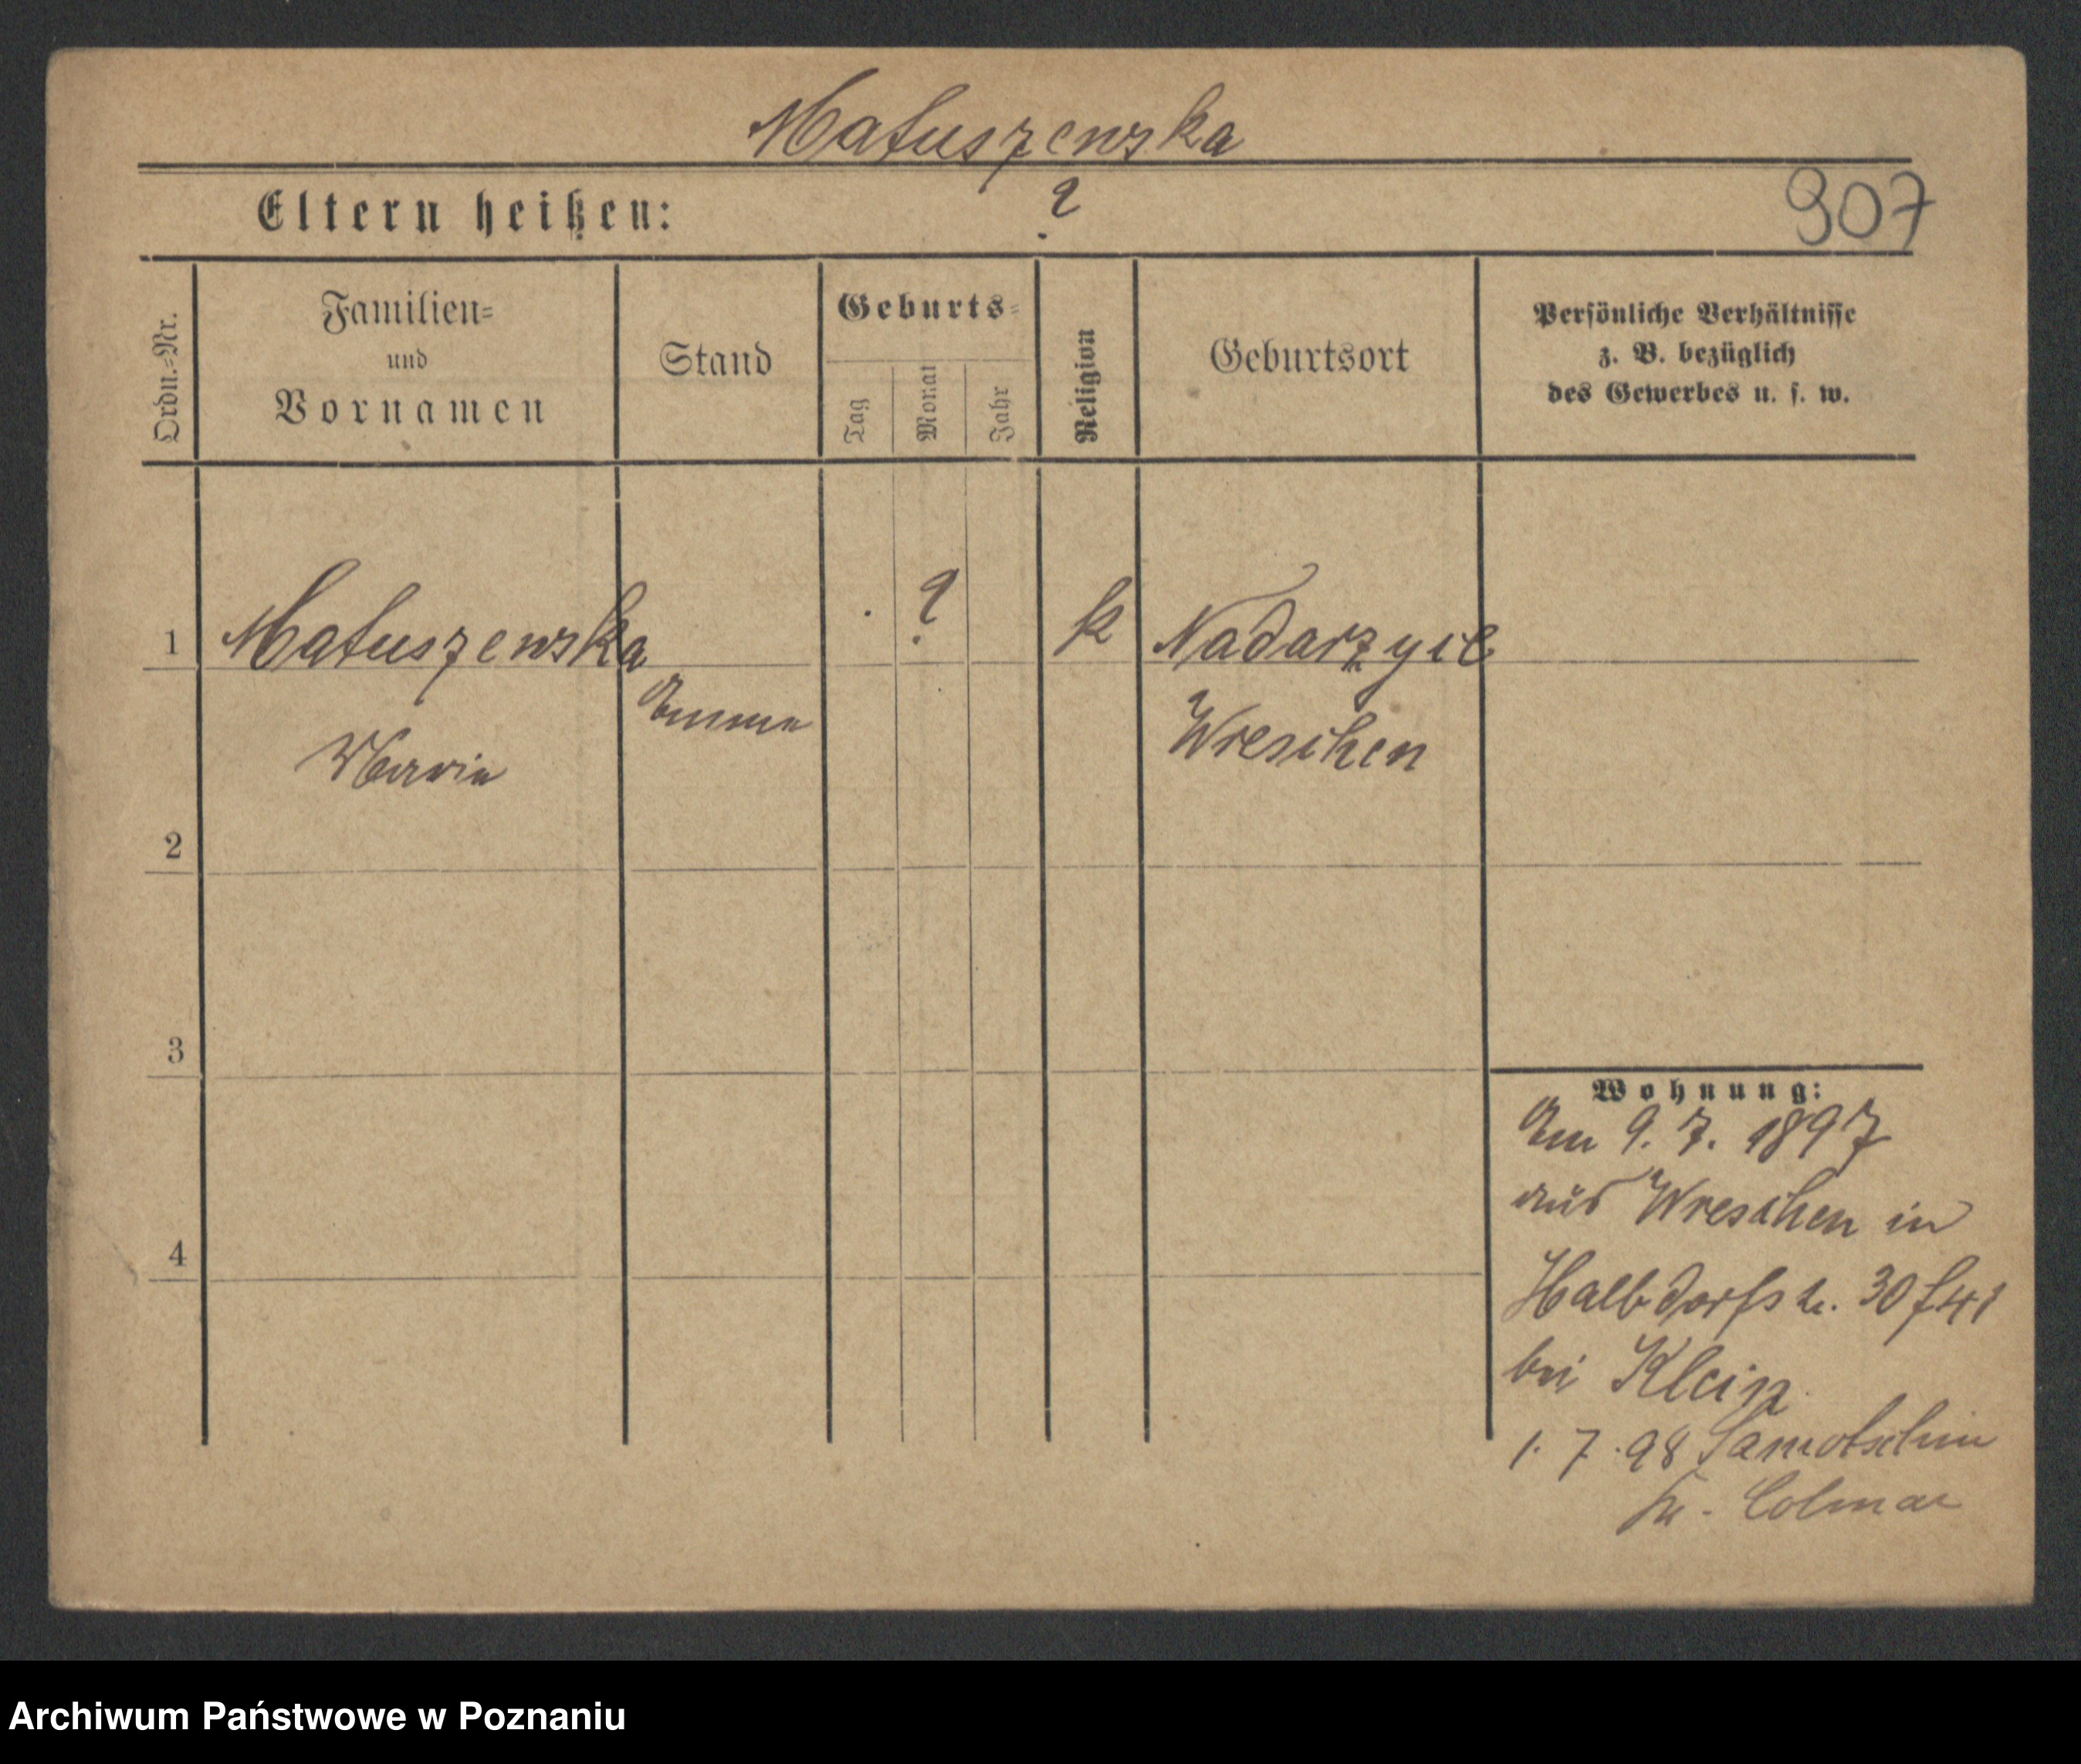 Matuszewska
Eltern heißen: ?
907
Ordn.=Nr.
Familien=
und
Vornamen
Stand
Geburts=
Tag
Monat
Jahr
Religion
Geburtsort
Persönliche Verhältnisse
z. B. bezüglich
des Gewerbes u. s. w.
1 Matuszewska ? k Nadarzyce
Amme
Marie Wreschen
2
3
4
Wohnung:
Am 9. 7. 1897
aus Wreschen in
Halbdorfstr. 30
bei Klein
1. 7. 98 Samotschin
Kr. Colmar
Archiwum Państwowe w Poznaniu